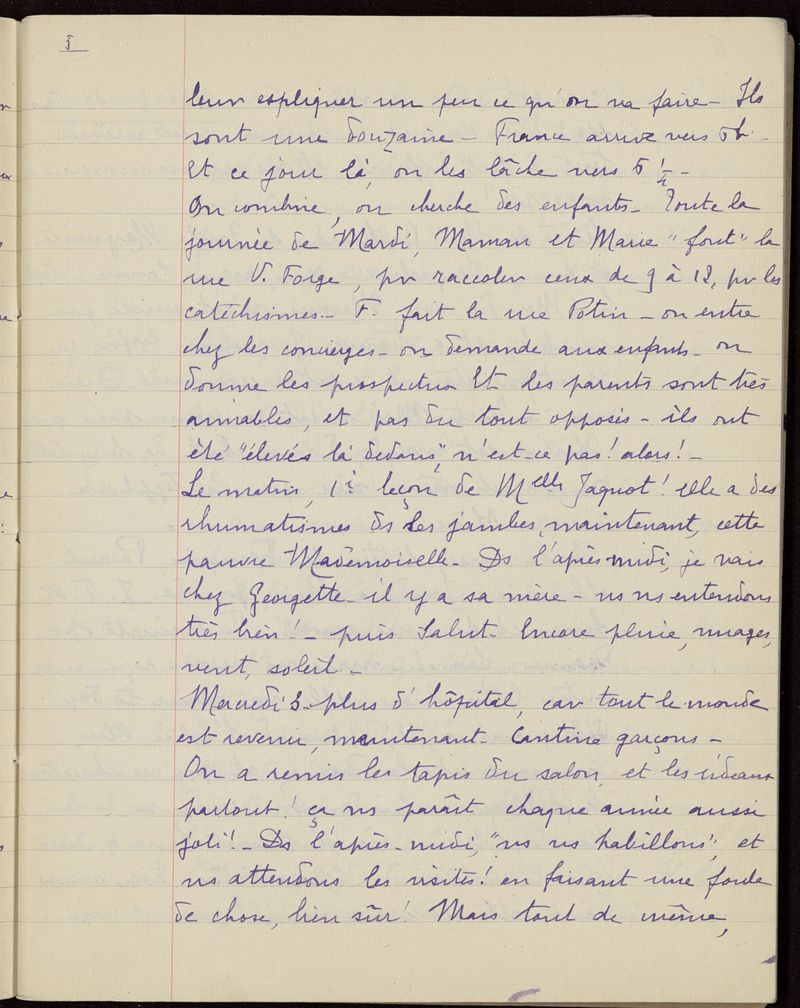 5
leur expliquer un peu ce qu'on va faire - Ils
sont une douzaine - France arrive vers 5h -
Et ce jour là, on les lâche vers 5 1/4 -
On combine, on cherche des enfants - Toute la
journée de Mardi, Maman et Marie "font" la
rue V. Forge, pr raccoler ceux de 9 à 12, pr les
catéchismes - F. fait la rue Potin - on entre
chez les concierges - on demande aux enfants - on
donne les prospectus Et les parents sont très
aimables, et pas du tout opposés - ils ont
été "élevés là dedans", n'est-ce pas! alors! -
Le matin, 1è leçon de Melle Jaquot! elle a des
rhumatismes ds les jambes, maintenant, cette
pauvre Mademoiselle - Ds l'après-midi, je vais
chez Georgette - il y a sa mère - ns ns entendons
très bien! - puis Salut - Encore pluie, nuages,
vent, soleil -
Mercredi 3 - plus d'hôpital, car tout le monde
est revenu, maintenant - Cantine garçons -
On a remis les tapis du salon, et les rideaux
partout! ça ns paraît chaque année aussi
joli! - Ds l'après-midi, "ns ns habillons", et
ns attendons les visites! en faisant une foule
de chose, bien sûr! Mais tout de même,